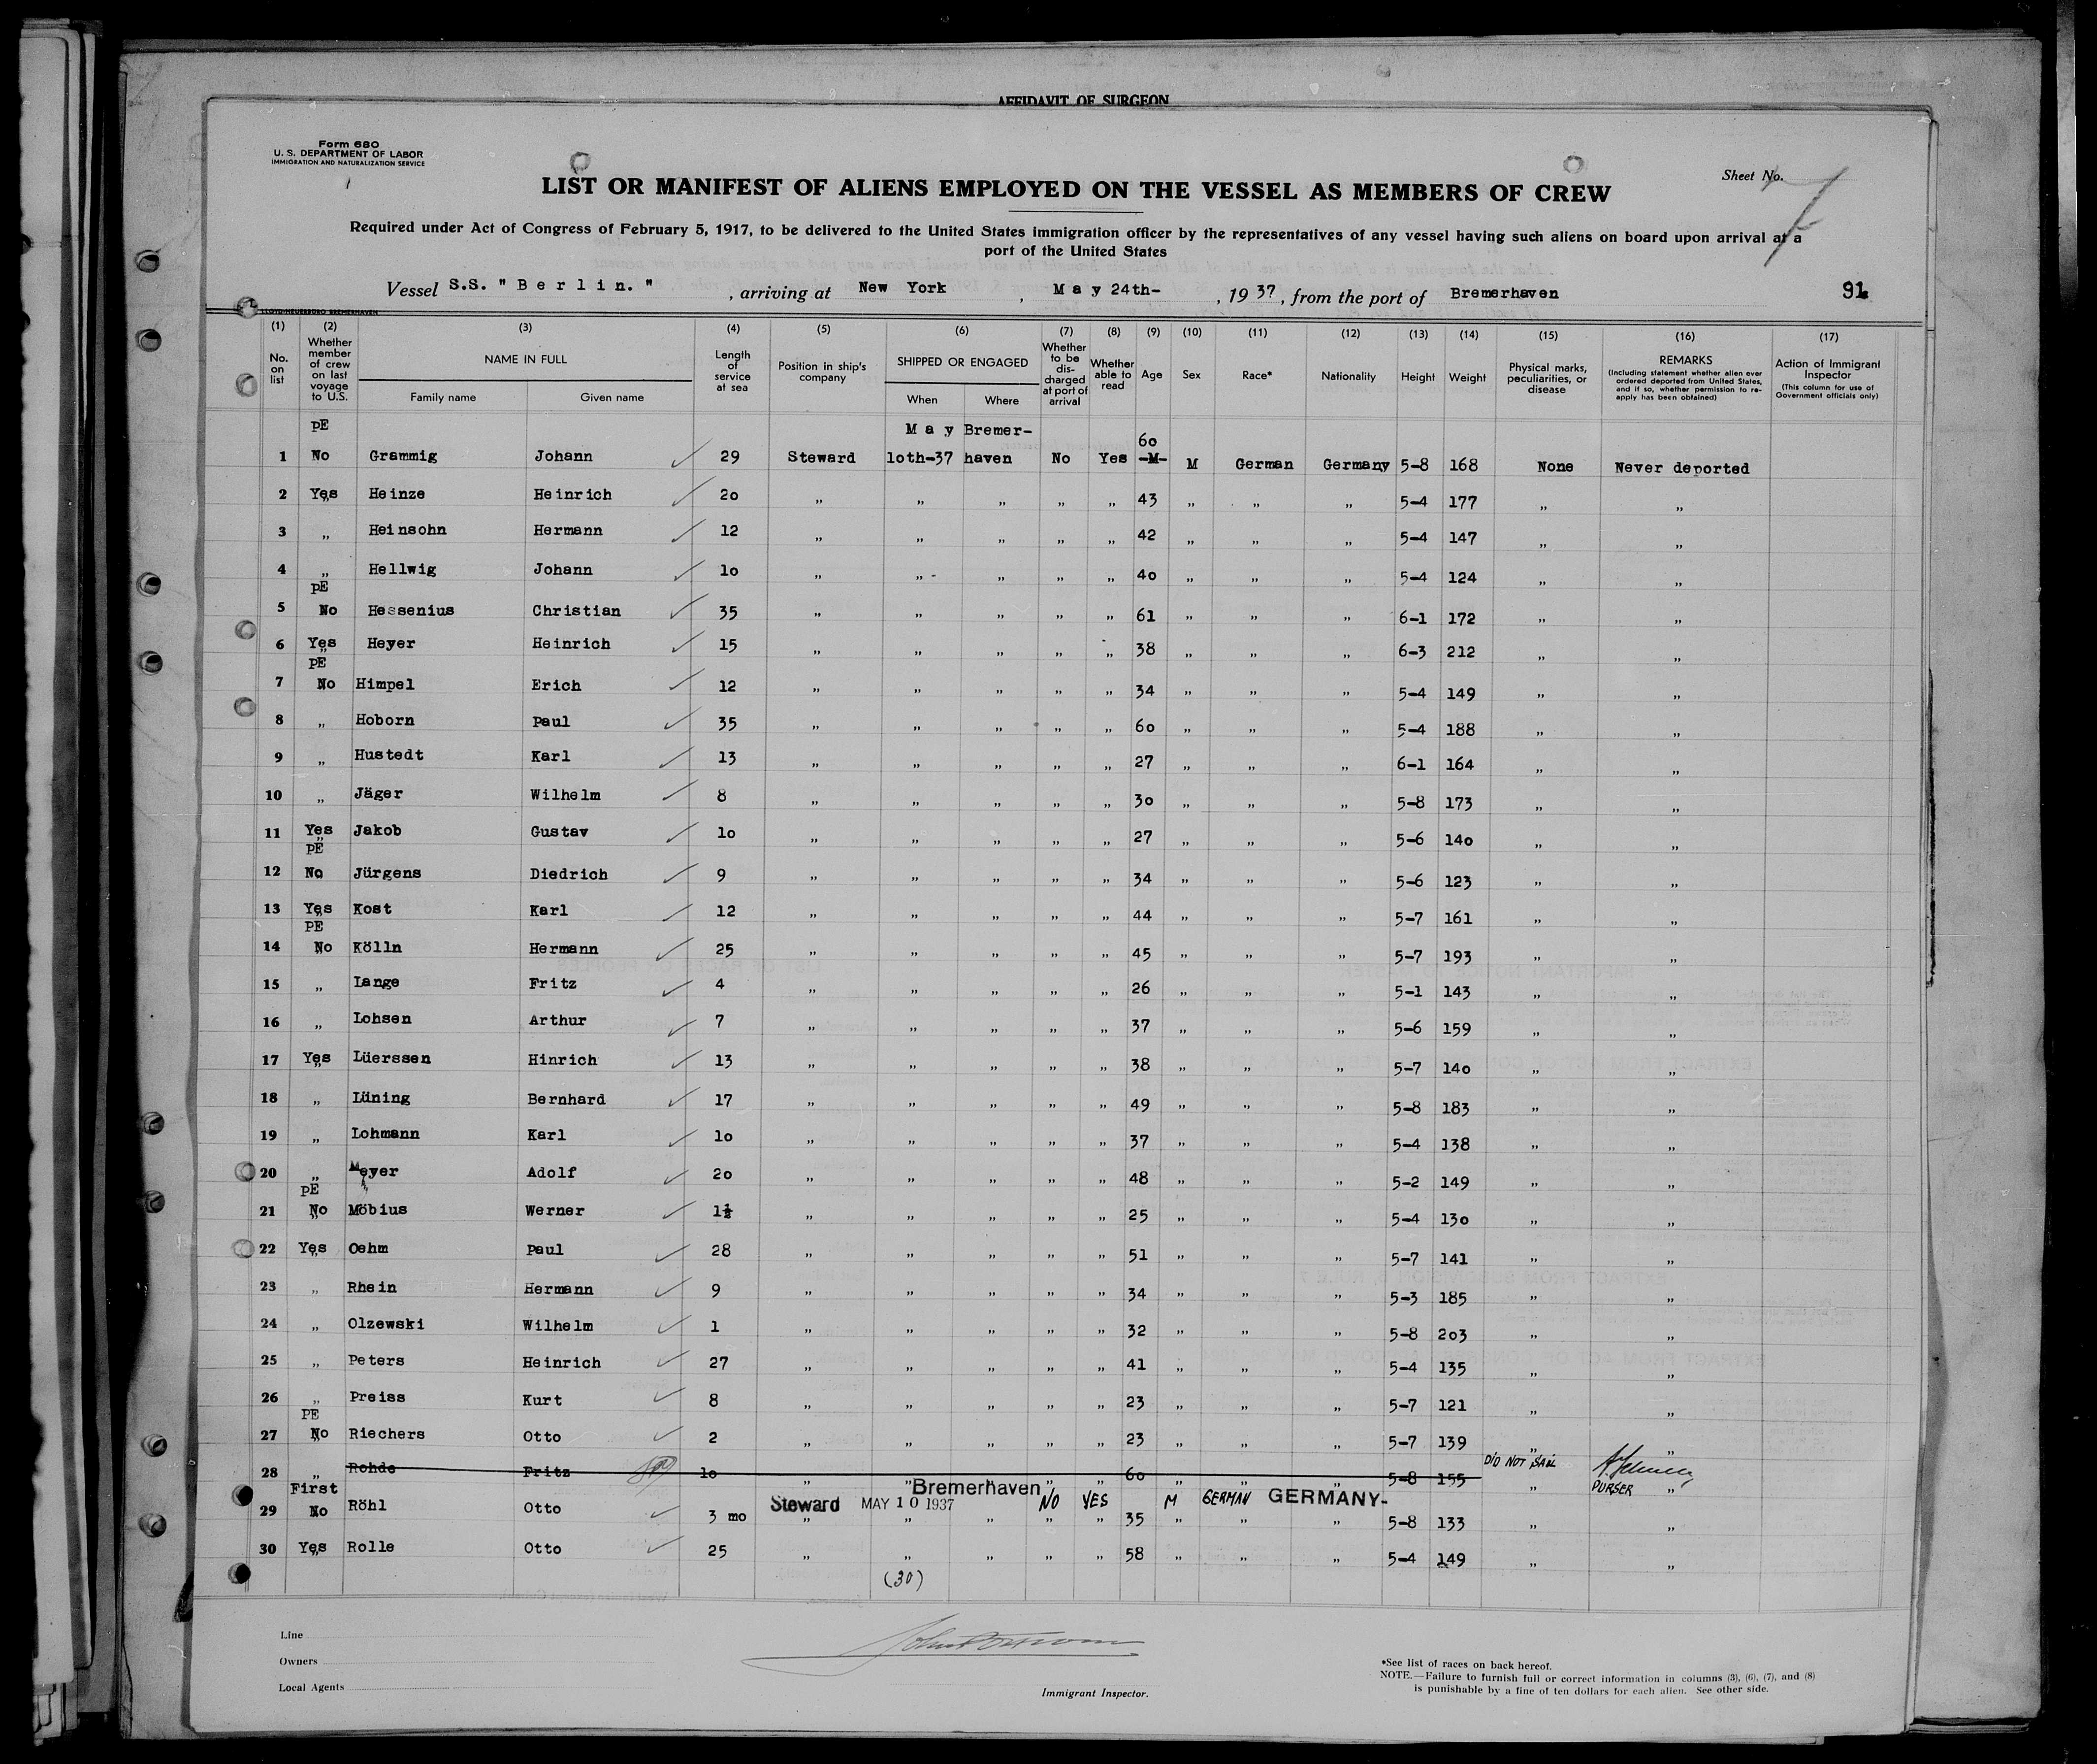 AFFIDAVIT OF SURGEON
Form 680
U. S. DEPARTMENT OF LABOR
IMMIGRATION AND NATURALIZATION SERVICE
Sheet No.
LIST OR MANIFEST OF ALIENS EMPLOYED ON THE VESSEL AS MEMBERS OF CREW
Required under Act of Congress of February 5, 1917, to be delivered to the United States immigration officer by the representatives of any vessel having such aliens on board upon arrival at a
port of the United States
Vessel S.S. " B e r l i n. " , arriving at New York , M a y 24th- , 19 37 , from the port of Bremerhaven 91
(1) (2) (3) (4) (5) (6) (7) (8) (9) (10) (11) (12) (13) (14) (15) (16) (17)
No. on list Whether member of crew on last voyage to U.S. NAME IN FULL Family name Given name Length of service at sea Position in ship's company SHIPPED OR ENGAGED When Where Whether to be discharged at port of arrival Whether able to read Age Sex Race* Nationality Height Weight Physical marks, peculiarities, or disease REMARKS (Including statement whether alien ever ordered deported from United States, and if so, whether permission to re-apply has been obtained) Action of Immigrant Inspector (This column for use of Government officials only)
pE M a y Bremer- 60
1 No Grammig Johann 29 Steward loth-37 haven No Yes -M- M German Germany 5-8 168 None Never deported
2 Yes Heinze Heinrich 2o " " " " " 43 " " " 5-4 177 " "
3 " Heinsohn Hermann 12 " " " " " 42 " " " 5-4 147 " "
4 " Hellwig Johann lo " " " " " 4o " " " 5-4 124 " "
pE
5 No Hessenius Christian 35 " " " " " 61 " " " 6-1 172 " "
6 Yes Heyer Heinrich 15 " " " " " 38 " " " 6-3 212 " "
pE
7 No Himpel Erich 12 " " " " " 34 " " " 5-4 149 " "
8 " Hoborn Paul 35 " " " " " 6o " " " 5-4 188 " "
9 " Hustedt Karl 13 " " " " " 27 " " " 6-1 164 " "
10 " Jäger Wilhelm 8 " " " " " 3o " " " 5-8 173 " "
11 Yes Jakob Gustav lo " " " " " 27 " " " 5-6 14o " "
pE
12 No Jürgens Diedrich 9 " " " " " 34 " " " 5-6 123 " "
13 Yes Kost Karl 12 " " " " " 44 " " " 5-7 161 " "
PE
14 No Kölln Hermann 25 " " " " " 45 " " " 5-7 193 " "
15 " Lange Fritz 4 " " " " " 26 " " " 5-1 143 " "
16 " Lohsen Arthur 7 " " " " " 37 " " " 5-6 159 " "
17 Yes Lüerssen Hinrich 13 " " " " " 38 " " " 5-7 14o " "
18 " Lüning Bernhard 17 " " " " " 49 " " " 5-8 183 " "
19 " Lohmann Karl lo " " " " " 37 " " " 5-4 138 " "
20 " Meyer Adolf 2o " " " " " 48 " " " 5-2 149 " "
pE
21 No Möbius Werner 1½ " " " " " 25 " " " 5-4 13o " "
22 Yes Oehm Paul 28 " " " " " 51 " " " 5-7 141 " "
23 " Rhein Hermann 9 " " " " " 34 " " " 5-3 185 " "
24 " Olzewski Wilhelm 1 " " " " " 32 " " " 5-8 2o3 " "
25 " Peters Heinrich 27 " " " " " 41 " " " 5-4 135 " "
26 " Preiss Kurt 8 " " " " " 23 " " " 5-7 121 " "
PE
27 No Riechers Otto 2 " " " " " 23 " " " 5-7 139 " "
28 " Rohde Fritz lo " " " " " 6o " " " 5-8 155 DID NOT SAIL " PURSER "
First Steward MAY 10 1937 Bremerhaven NO YES M GERMAN GERMANY-
29 No Röhl Otto 3 mo " " " " " 35 " " " 5-8 133 " "
30 Yes Rolle Otto 25 " " " " " 58 " " " 5-4 149 " "
(30)
Line
Owners
Local Agents
Immigrant Inspector.
*See list of races on back hereof.
NOTE.—Failure to furnish full or correct information in columns (3), (6), (7), and (8)
is punishable by a fine of ten dollars for each alien. See other side.